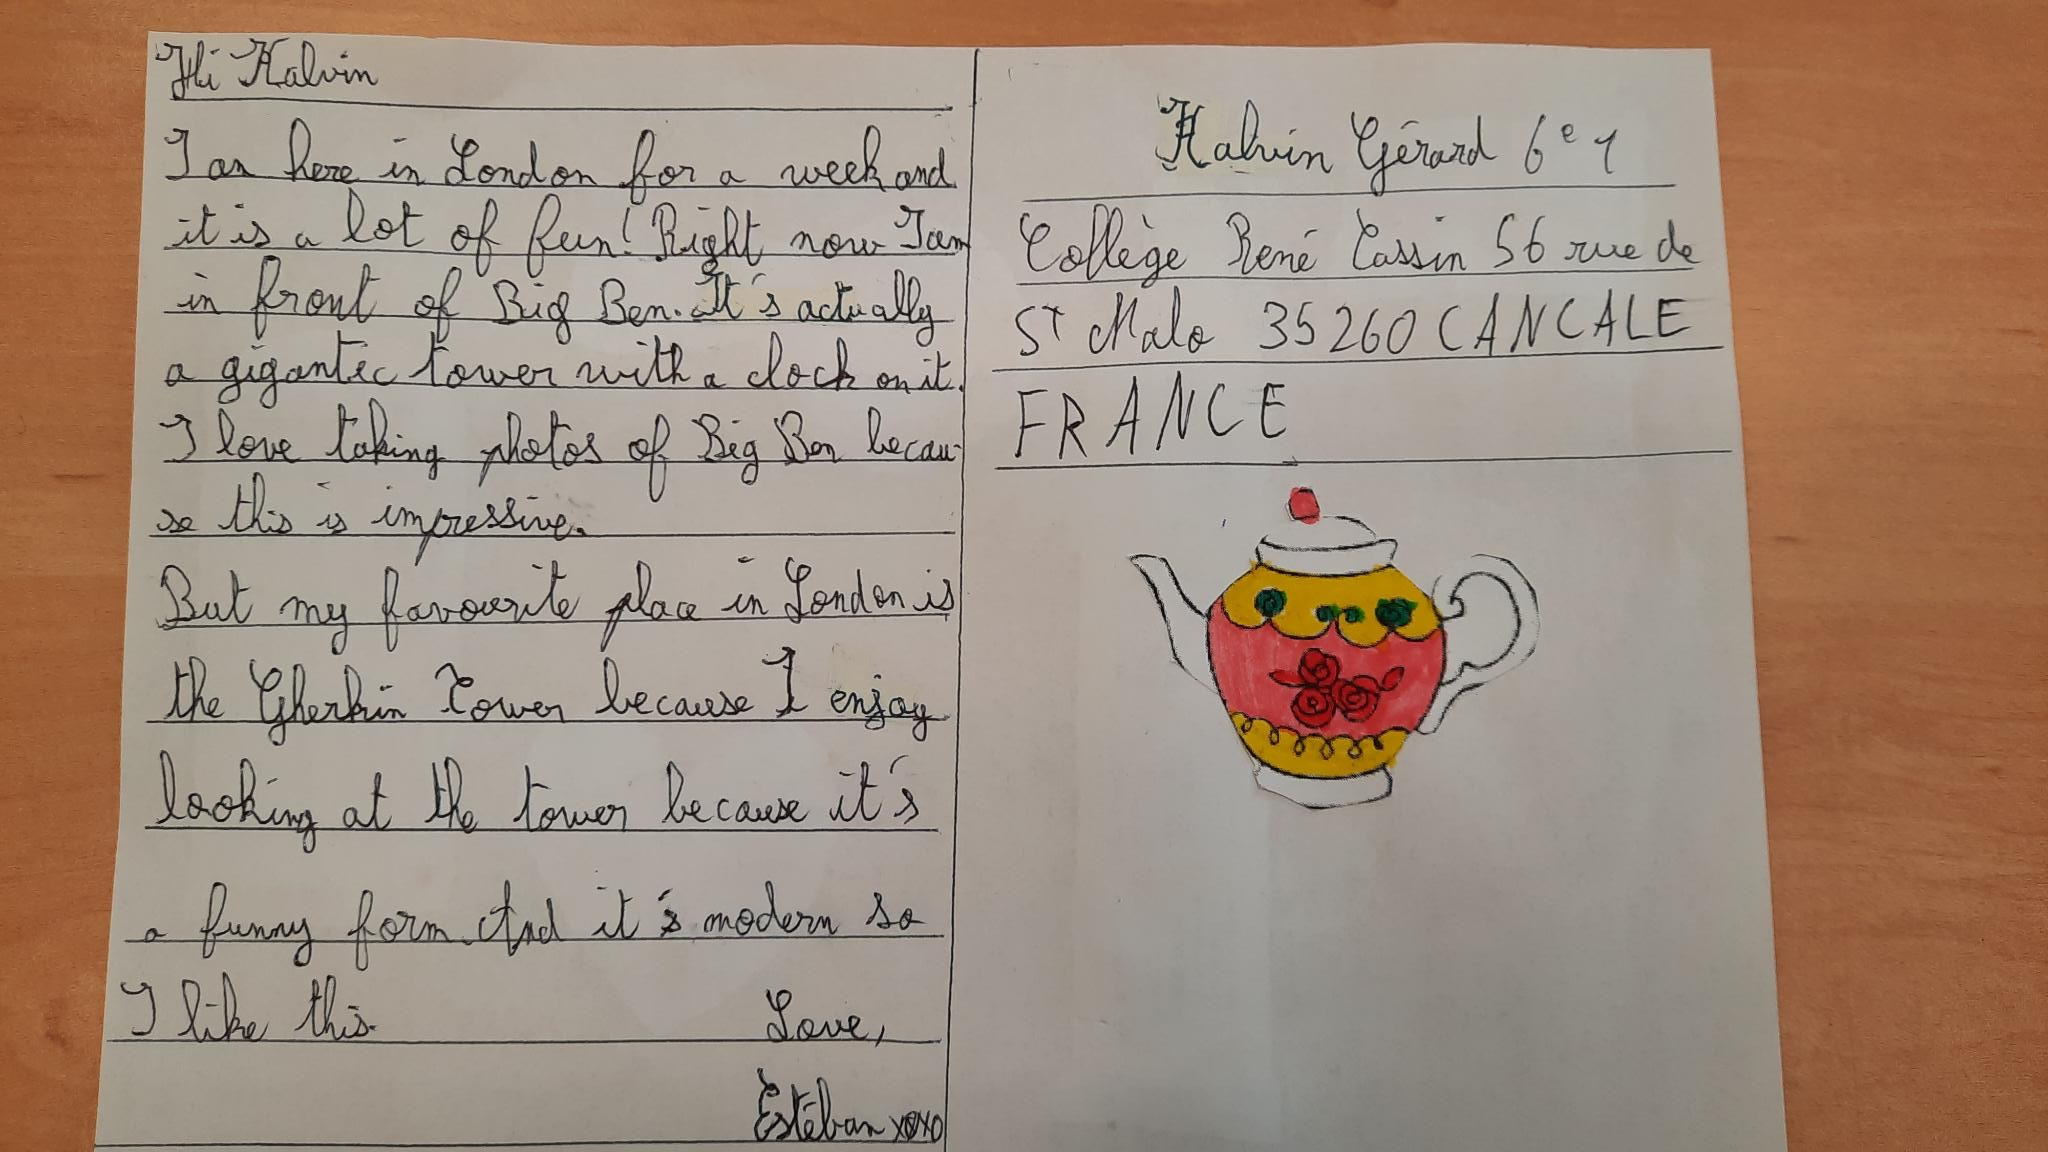 Hi Kalvin
I am here in London for a week and
it is a lot of fun! Right now I am
in front of Big Ben. It's actually
a gigantic tower with a clock on it.
I love taking photos of Big Ben becau-
se this is impressive.
But my favourite place in London is
the Gherkin Tower because I enjoy
looking at the tower because it's
a funny form. And it's modern so
I like this.
Love,
Estéban xoxo
Kalvin Gérard 6e1
Collège René Cassin 56 rue de
ST Malo 35260 CANCALE
FRANCE